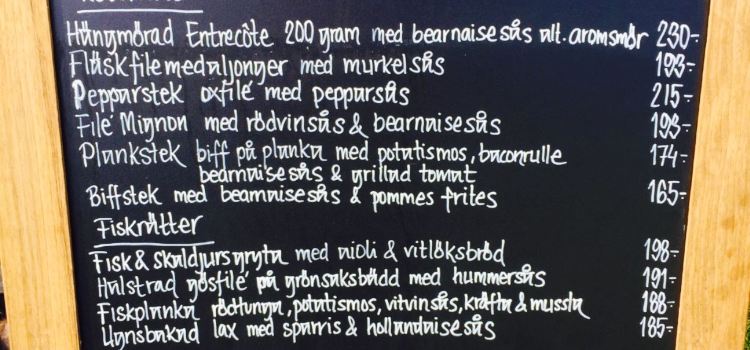 Hängmörad Entrecôte 200 gram med bearnaisesås alt. aromsmör 230:-
Fläskfilemedaljonger med murkelsås 193:-
Pepparstek oxfilé med pepparsås 215:-
Filé Mignon med rödvinsås & bearnaisesås 193:-
Plankstek biff på planka med potatismos, baconrulle 174:-
bearnaisesås & grillad tomat
Biffstek med bearnaisesås & pommes frites 165:-
Fiskrätter
Fisk & skaldjursgryta med aioli & vitlöksbröd 198:-
Halstrad gösfilé på grönsaksbädd med hummersås 191:-
Fiskplanka rödtunga, potatismos, vitvinsås, kräfta & mussla 188:-
Ugnsbakad lax med sparris & hollandaisesås 185:-